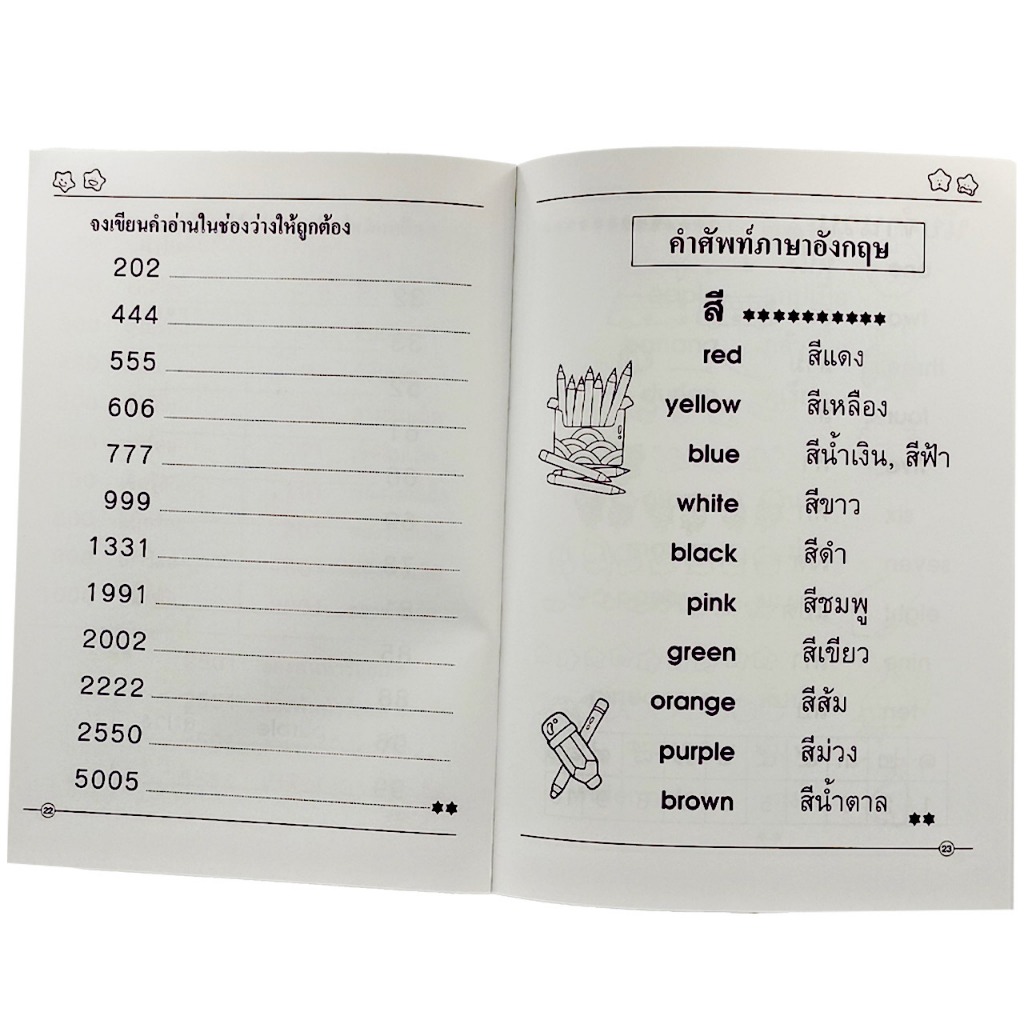 จงเขียนคำอ่านในช่องว่างให้ถูกต้อง
202
444
555
606
777
999
1331
1991
2002
2222
2550
5005
22
คำศัพท์ภาษาอังกฤษ
สี
red สีแดง
yellow สีเหลือง
blue สีน้ำเงิน, สีฟ้า
white สีขาว
black สีดำ
pink สีชมพู
green สีเขียว
orange สีส้ม
purple สีม่วง
brown สีน้ำตาล
23